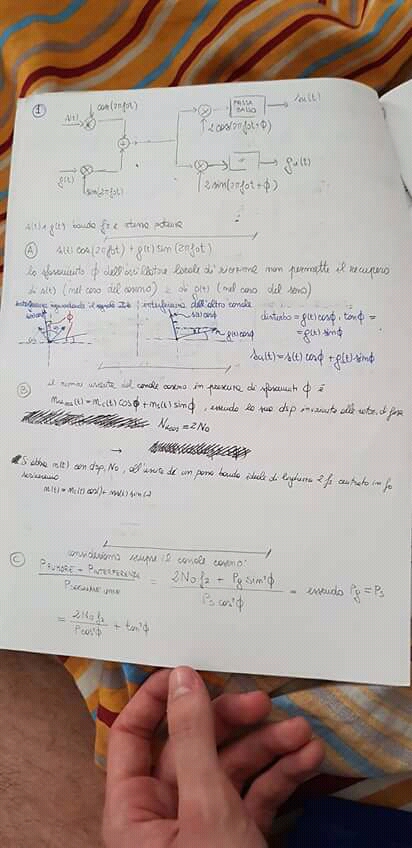 1
cos(2πf0t)
s(t)
g(t)
sin(2πf0t)
2cos(2πf0t+ϕ)
PASSA
BASSO
su(t)
2sin(2πf0t+ϕ)
gu(t)
s(t) e g(t) banda fz e stessa potenza
A s(t) cos(2πf0t) + g(t) sin(2πf0t)
lo sfasamento ϕ dell'oscillatore locale di ricezione non permette il recupero
di s(t) (nel caso del coseno) e di g(t) (nel caso del seno)
interferenza dell'altro canale
s(t)cosϕ
g(t)cosϕ
disturbo = g(t)cosϕ, tanϕ =
= g(t)sinϕ
su(t) = s(t)cosϕ + g(t)sinϕ
B il rumore uscente del canale coseno in presenza di sfasamenti ϕ è
(t) = nc(t)cosϕ + ns(t)sinϕ, essendo la sua dsp invariante alla rotaz. di fase
= 2N0
→
n(t) con dsp N0, all'uscita di un passa banda ideale di larghezza 2fz centrato in f0
C consideriamo sempre il canale coseno:
PRUMORE + PINTERFERENZA / PSEGNALE UTILE = 2N0fz + Pg sin²ϕ / Ps cos²ϕ = essendo Pg = Ps
= 2N0fz / Pcos²ϕ + tan²ϕ